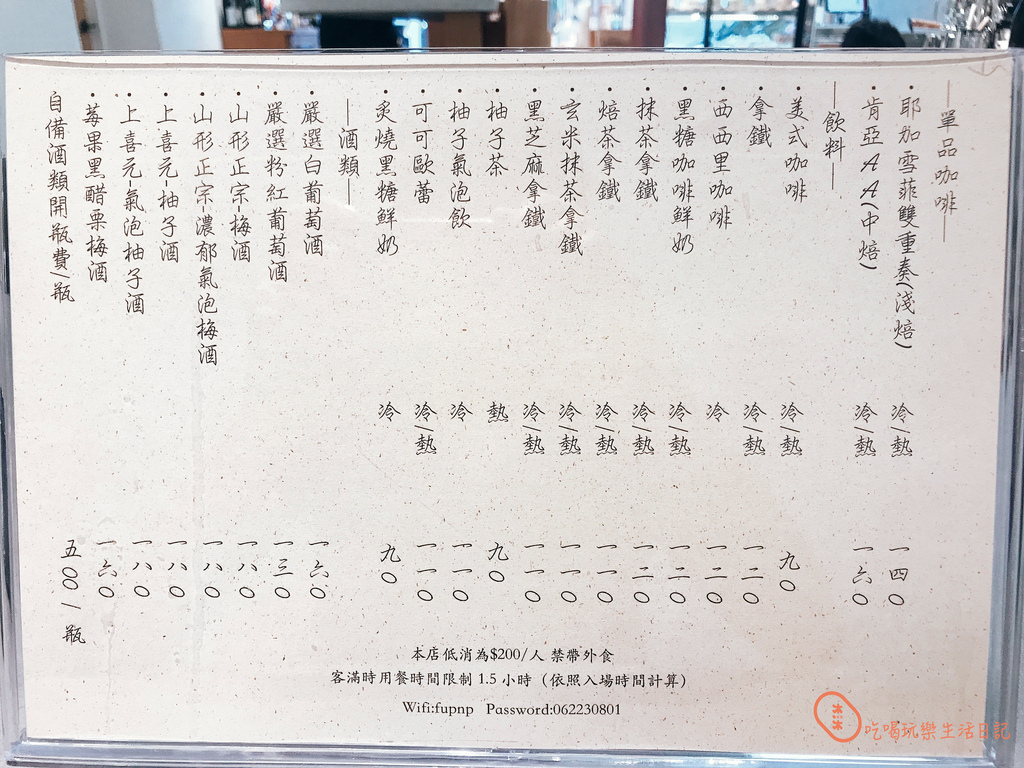 —單品咖啡—
•耶加雪菲雙重奏(淺焙) 冷/熱 一四〇
•肯亞AA(中焙) 冷/熱 一六〇
—飲料—
•美式咖啡 冷/熱 九〇
•拿鐵 冷/熱 一二〇
•西西里咖啡 冷 一二〇
•黑糖咖啡鮮奶 冷/熱 一二〇
•抹茶拿鐵 冷/熱 一二〇
•焙茶拿鐵 冷/熱 一一〇
•玄米抹茶拿鐵 冷/熱 一一〇
•黑芝麻拿鐵 冷/熱 一一〇
•柚子茶 熱 九〇
•柚子氣泡飲 冷 一一〇
•可可歐蕾 冷/熱 一一〇
•炙燒黑糖鮮奶 冷 九〇
—酒類—
•嚴選白葡萄酒 一六〇
•嚴選粉紅葡萄酒 一三〇
•山形正宗-梅酒 一八〇
•山形正宗-濃郁氣泡梅酒 一八〇
•上喜元-柚子酒 一八〇
•上喜元-氣泡柚子酒 一八〇
•莓果黑醋栗梅酒 一六〇
自備酒類開瓶費/瓶 五〇〇/瓶
本店低消為$200/人 禁帶外食
客滿時用餐時間限制 1.5 小時（依照入場時間計算）
Wifi:fupnp Password:062230801
吃喝玩樂生活日記